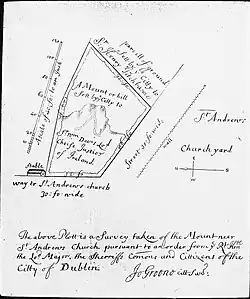 parcell of ground
Sett by ye Citty to
Henry
A Mount or hill
Sett by ye Citty to
Sr Wm Davis Ld
Chiefe Justice
of Ireland
Stable
way to St Andrews church
30: fo: wide
Street 30 fo: wide
wall
St Andrews
Church yard
The above Plott is a Survey taken of the Mount neer
St Andrews Church pursuant to an order from ye Rt Honble
the Lo: Mayor, the Sherriffs Comons and Cittizens of the
Citty of Dublin
Jo: Greene